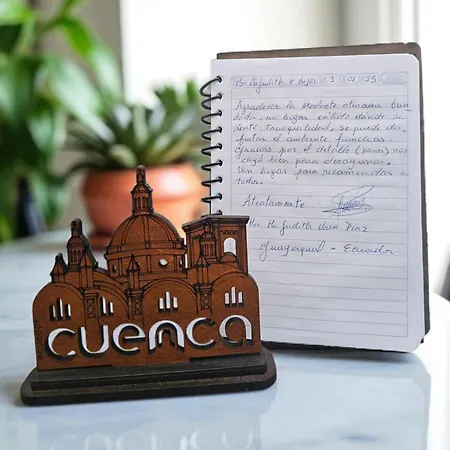 Ma. Judith e hijos 3 01 25
Agradecer la excelente atención brin
dada un lugar cálido donde se
siente tranquilidad, se puede dis-
frutar el ambiente familiar
Gracias por el detalle (pavo) nos
cayó bien para desayunar.
Un lugar para recomendar a
todos.
Atentamente
Ma. Judith Vaca Díaz
Guayaquil - Ecuador
cuenca